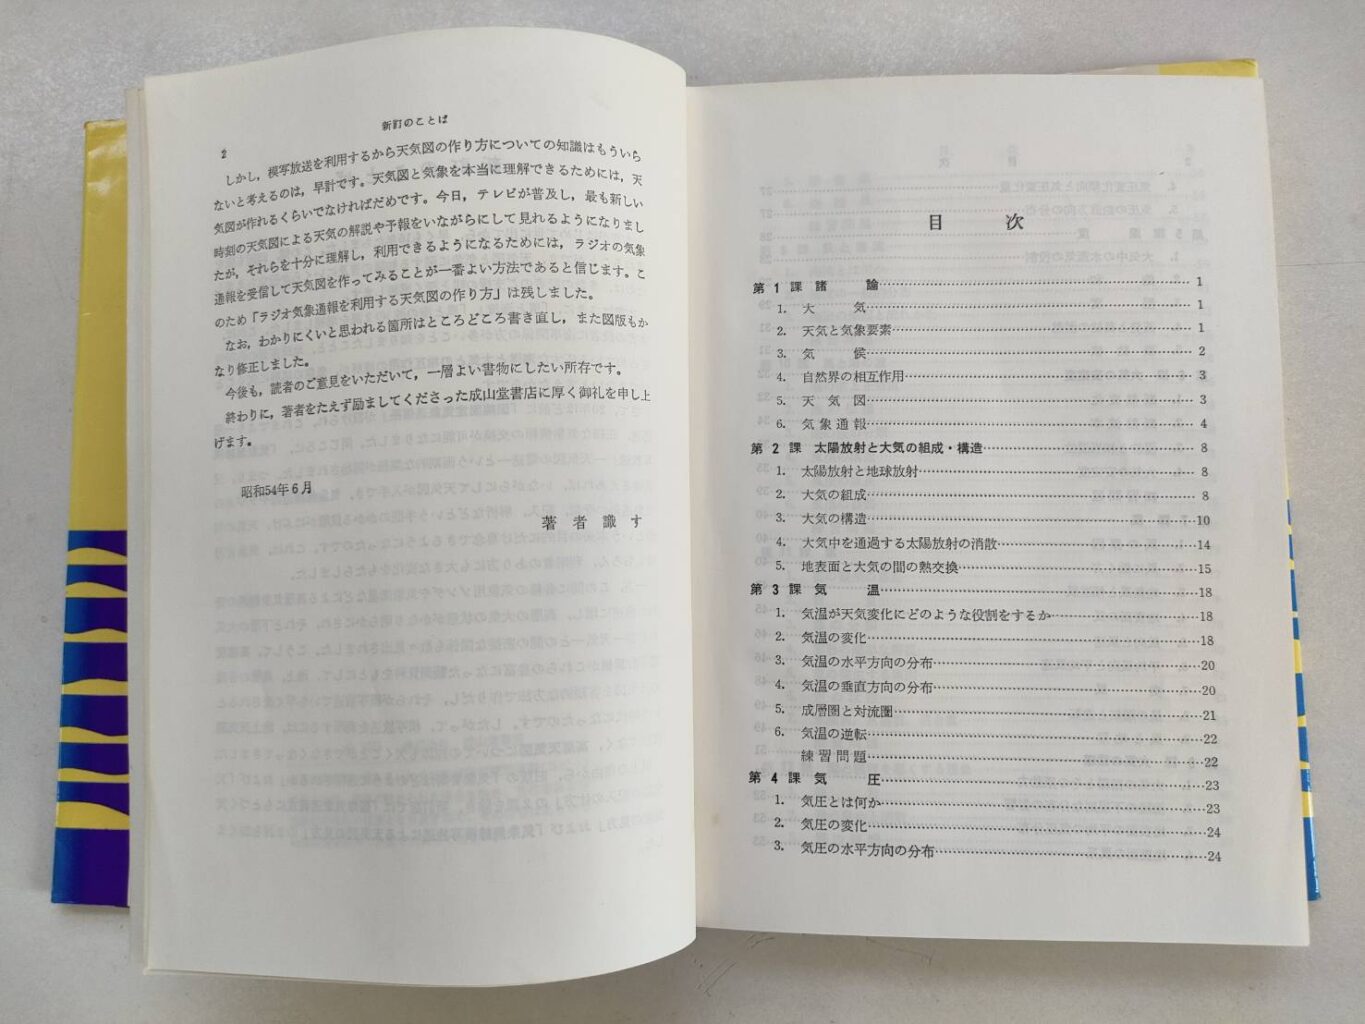 新訂のことば
2
しかし，模写放送を利用するから天気図の作り方についての知識はもういら
ないと考えるのは，早計です。天気図と気象を本当に理解できるためには，天
気図が作れるくらいでなければだめです。今日，テレビが普及し，最も新しい
時刻の天気図による天気の解説や予報をいながらにして見れるようになりまし
たが，それらを十分に理解し，利用できるようになるためには，ラジオの気象
通報を受信して天気図を作ってみることが一番よい方法であると信じます。こ
のため「ラジオ気象通報を利用する天気図の作り方」は残しました。
なお，わかりにくいと思われる箇所はところどころ書き直し，また図版もか
なり修正しました。
今後も，読者のご意見をいただいて，一層よい書物にしたい所存です。
終わりに，著者をたえず励ましてくださった成山堂書店に厚く御礼を申し上
げます。
昭和54年6月
著者識す
目次
第1課 諸論 1
1. 大気 1
2. 天気と気象要素 1
3. 気候 2
4. 自然界の相互作用 3
5. 天気図 3
6. 気象通報 4
第2課 太陽放射と大気の組成・構造 8
1. 太陽放射と地球放射 8
2. 大気の組成 8
3. 大気の構造 10
4. 大気中を通過する太陽放射の消散 14
5. 地表面と大気の間の熱交換 15
第3課 気温 18
1. 気温が天気変化にどのような役割をするか 18
2. 気温の変化 18
3. 気温の水平方向の分布 20
4. 気温の垂直方向の分布 20
5. 成層圏と対流圏 21
6. 気温の逆転 22
練習問題 22
第4課 気圧 23
1. 気圧とは何か 23
2. 気圧の変化 24
3. 気圧の水平方向の分布 24